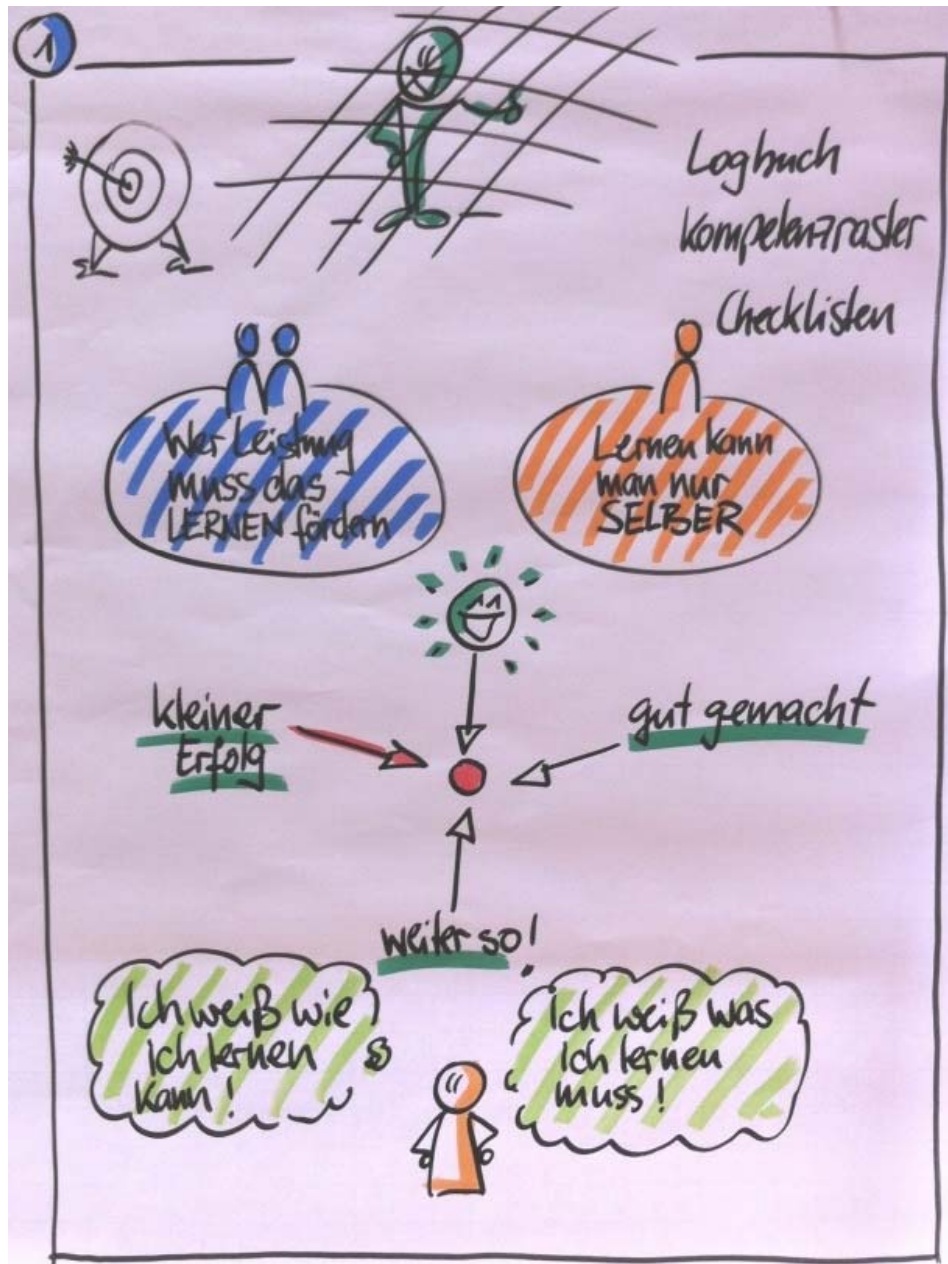 1
Logbuch
Kompetenzraster
Checklisten
Wer Leistung
muss das
LERNEN fördern
Lernen kann
man nur
SELBER
kleiner
Erfolg
gut gemacht
weiter so!
Ich weiß wie
ich lernen
kann!
Ich weiß was
ich lernen
muss!